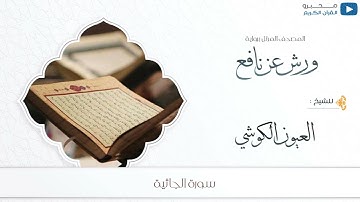 محبرو
القرآن الكريم
المصحف المرتل برواية
ورش عن نافع
للشيخ :
العيون الكوشي
سورة الجاثية